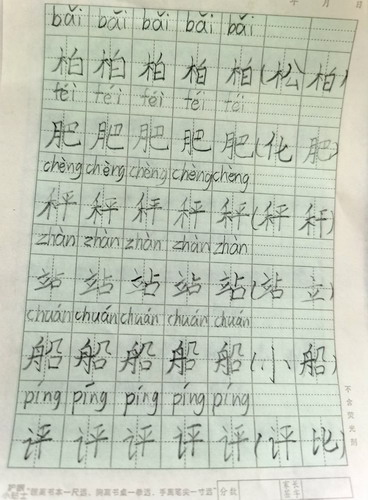 年 月 日
bǎi bǎi bǎi bǎi bǎi
柏 柏 柏 柏 柏 (松柏)
féi féi féi féi féi
肥 肥 肥 肥 肥 (化肥)
chèng chèng chèng chèng chèng
秤 秤 秤 秤 秤 (秤秆)
zhàn zhàn zhàn zhàn zhàn
站 站 站 站 站 (站立)
chuán chuán chuán chuán chuán
船 船 船 船 船 (小船)
píng píng píng píng píng
评 评 评 评 评 (评比)
不含荧光剂
"眼离书本一尺远，胸离书桌一拳远，手离笔尖一寸远"